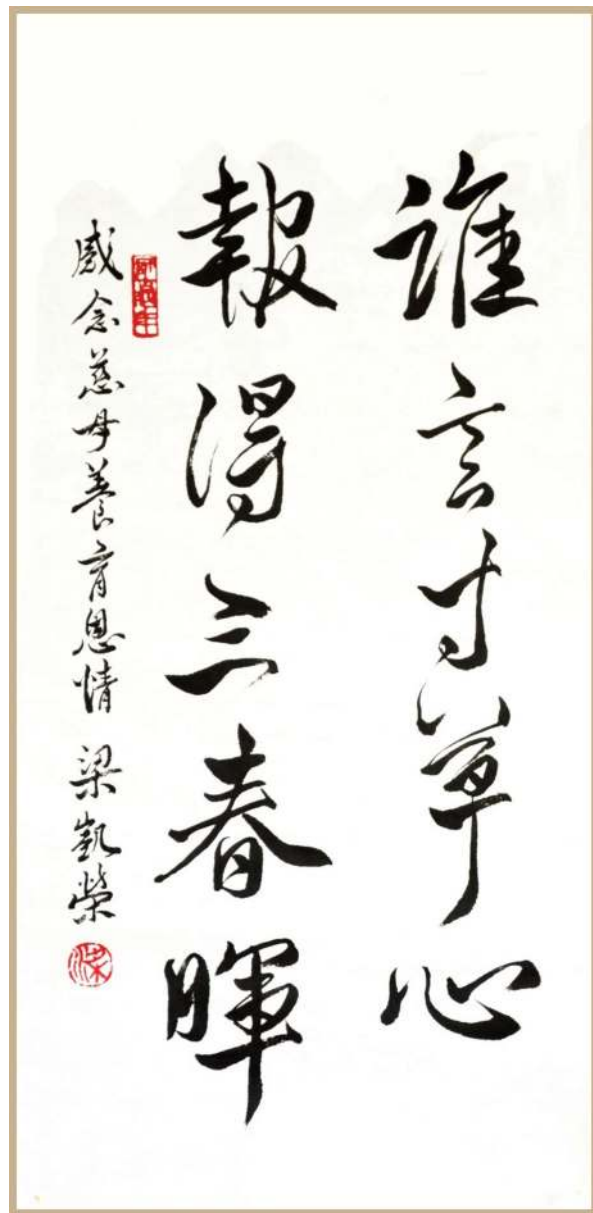 誰言寸草心
報得三春暉
感念慈母養育恩情 梁凱榮
梁